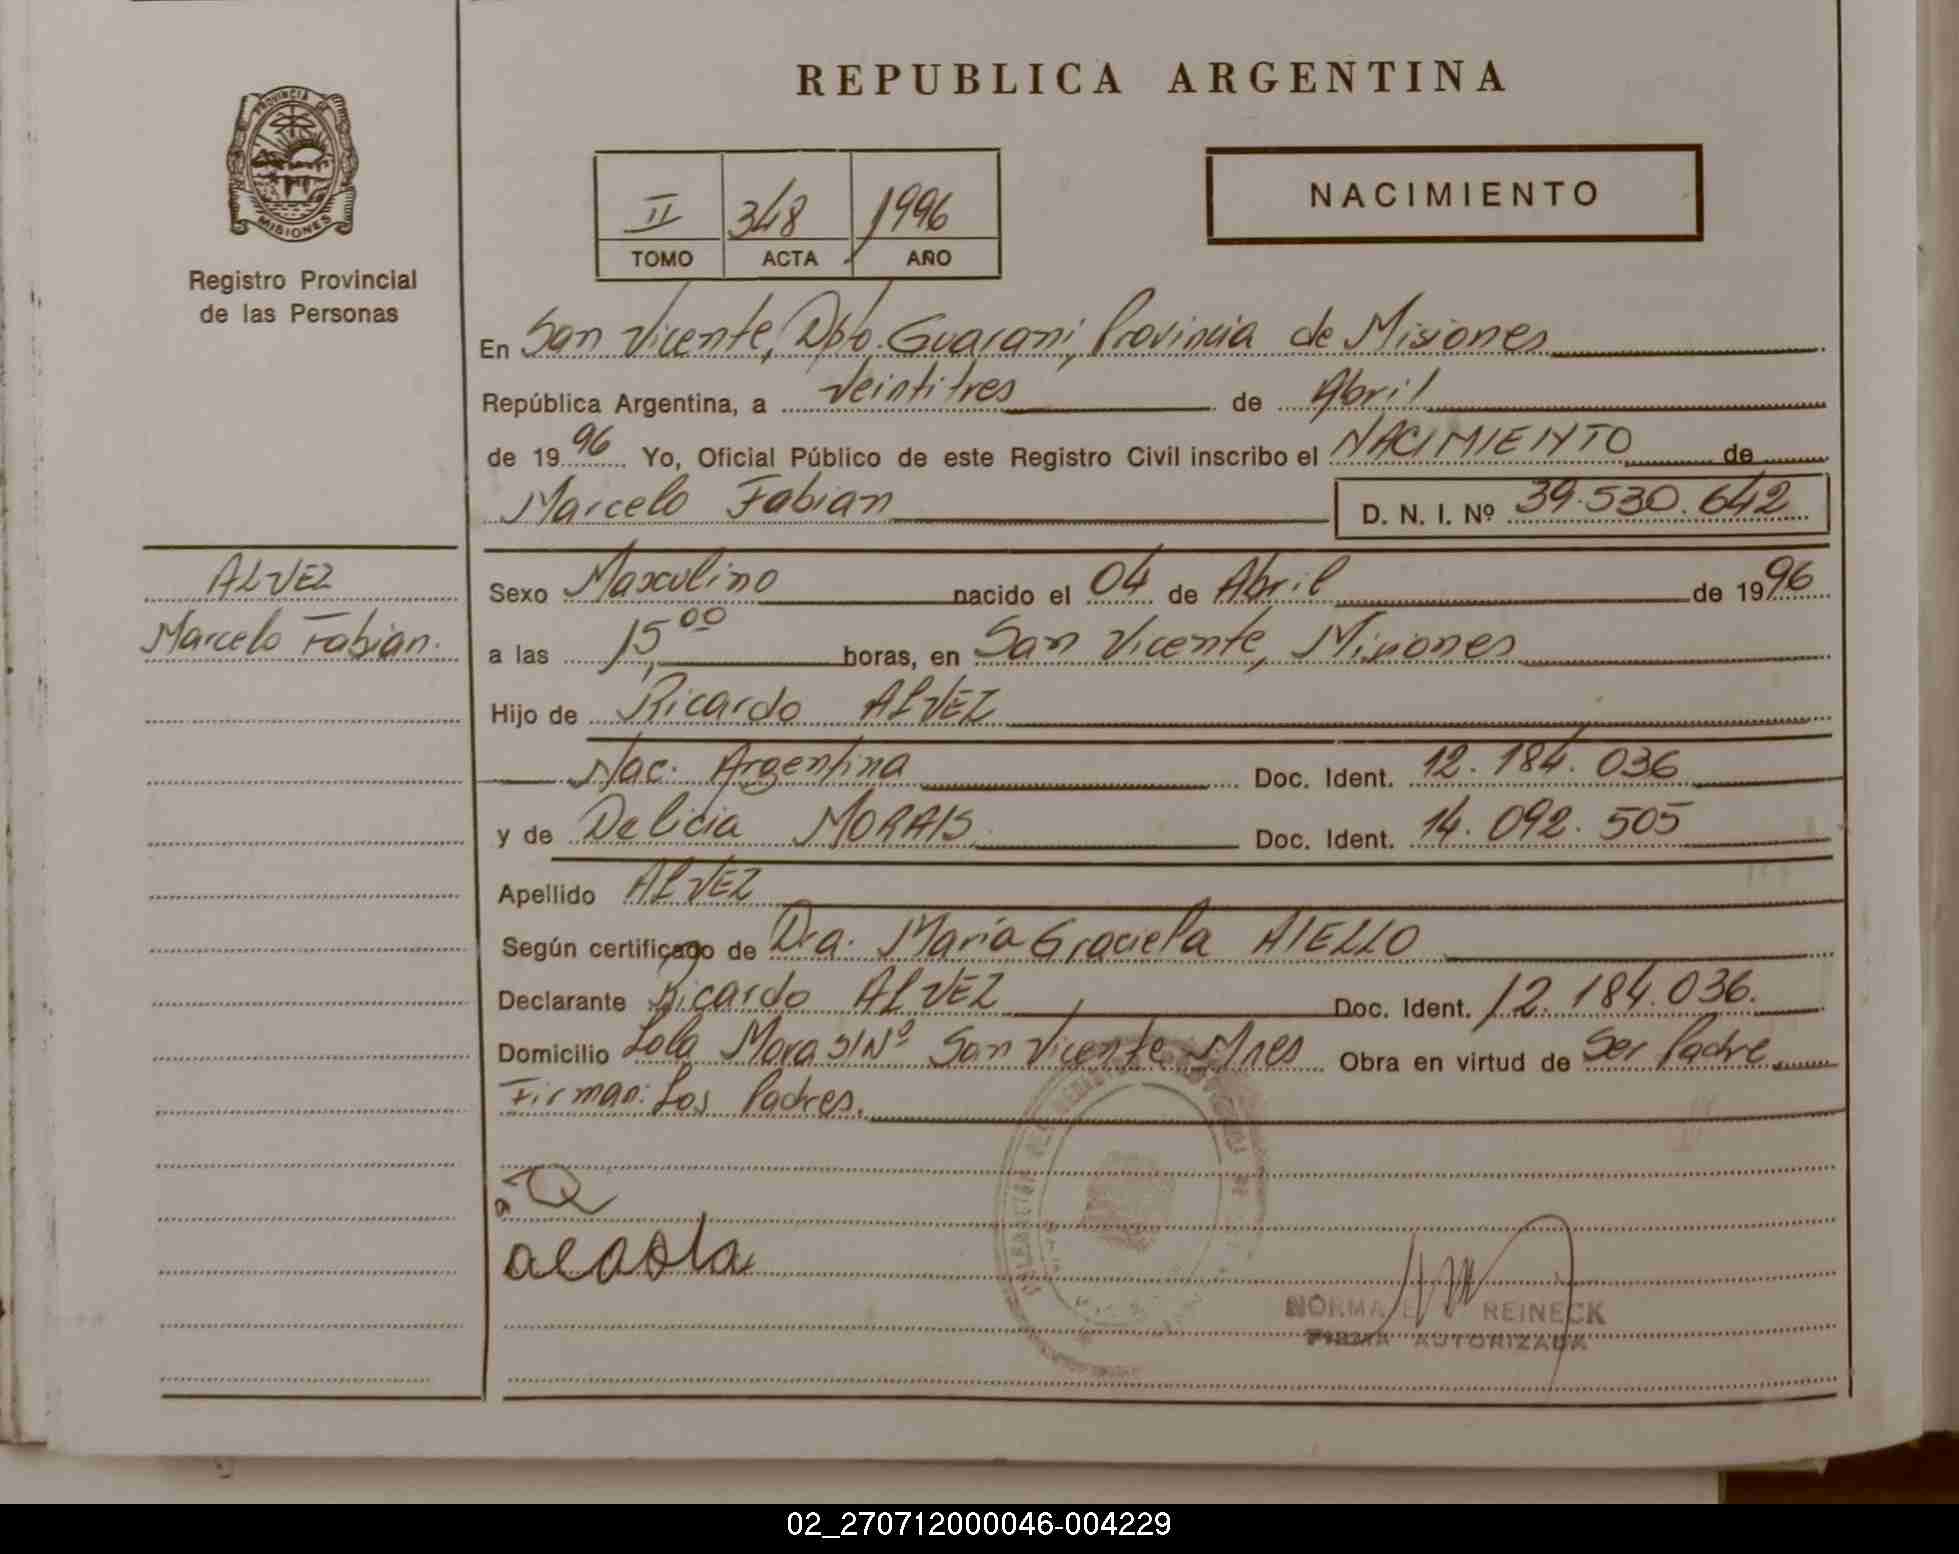 REPUBLICA ARGENTINA
PROVINCIA DE
MISIONES
Registro Provincial
de las Personas
NACIMIENTO
II 348 1996
TOMO ACTA AÑO
En San Vicente, Dpto. Guarani, Provincia de Misiones
República Argentina, a Veintitres de Abril
de 1996 Yo, Oficial Público de este Registro Civil inscribo el NACIMIENTO de
Marcelo Fabian D. N. I. Nº 39.530.642
ALVEZ
Marcelo Fabian.
Sexo Masculino nacido el 04 de Abril de 1996
a las 15,00 horas, en San Vicente, Misiones
Hijo de Ricardo ALVEZ
Nac. Argentina Doc. Ident. 12.184.036
y de Delicia MORAIS Doc. Ident. 14.092.505
Apellido ALVEZ
Según certificado de Dra. Maria Graciela AIELLO
Declarante Ricardo ALVEZ Doc. Ident. 12.184.036.
Domicilio Lola Mora S/Nº San Vicente Mnes Obra en virtud de Ser Padre
Firman: Los Padres.
NORMA E. REINECK
FIRMA AUTORIZADA
02_270712000046-004229